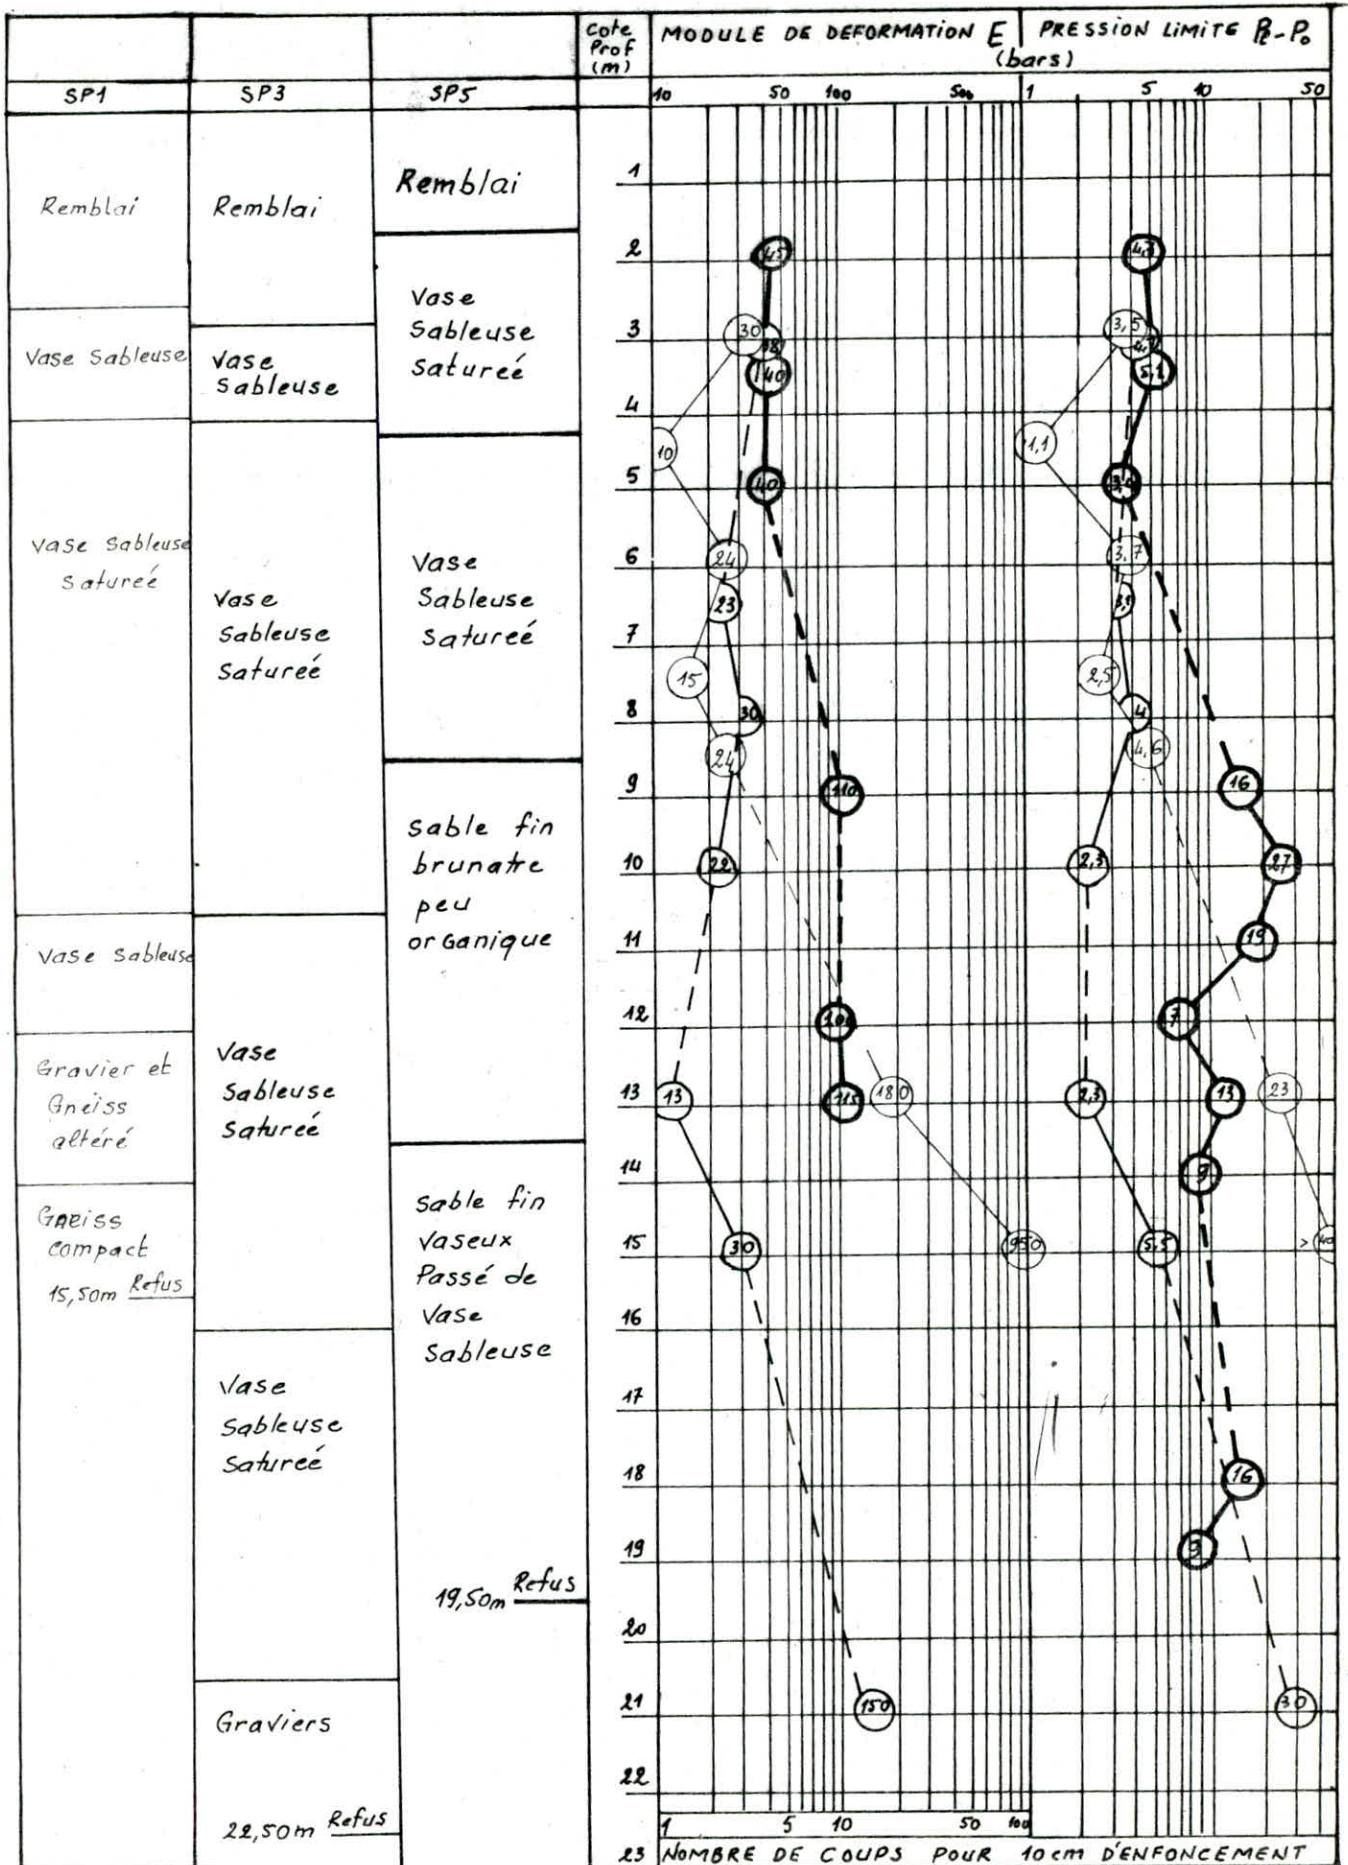 Cote
Prof
(m)
MODULE DE DEFORMATION E
PRESSION LIMITE Pℓ-P₀
(bars)
SP1
SP3
SP5
10 50 100 500
1 5 10 50
Remblai
Vase Sableuse
Vase Sableuse
Satureé
Vase Sableuse
Gravier et
Gneïss
altéré
Gneiss
compact
15,50m Refus
Remblai
Vase
Sableuse
Vase
Sableuse
Satureé
Vase
Sableuse
Satureé
Vase
Sableuse
Satureé
Graviers
22,50m Refus
Remblai
Vase
Sableuse
Satureé
Vase
Sableuse
Satureé
Sable fin
brunatre
peu
organique
Sable fin
Vaseux
Passé de
Vase
Sableuse
19,50m Refus
1
2
3
4
5
6
7
8
9
10
11
12
13
14
15
16
17
18
19
20
21
22
23
45
30
40
10
40
24
23
15
30
24
110
22
100
13
115
180
30
950
150
3,5
5,1
1,1
3,7
2,5
4
4,6
16
2,3
27
19
7
2,3
13
23
9
5,5
16
9
30
1 5 10 50 100
NOMBRE DE COUPS POUR 10 cm D'ENFONCEMENT